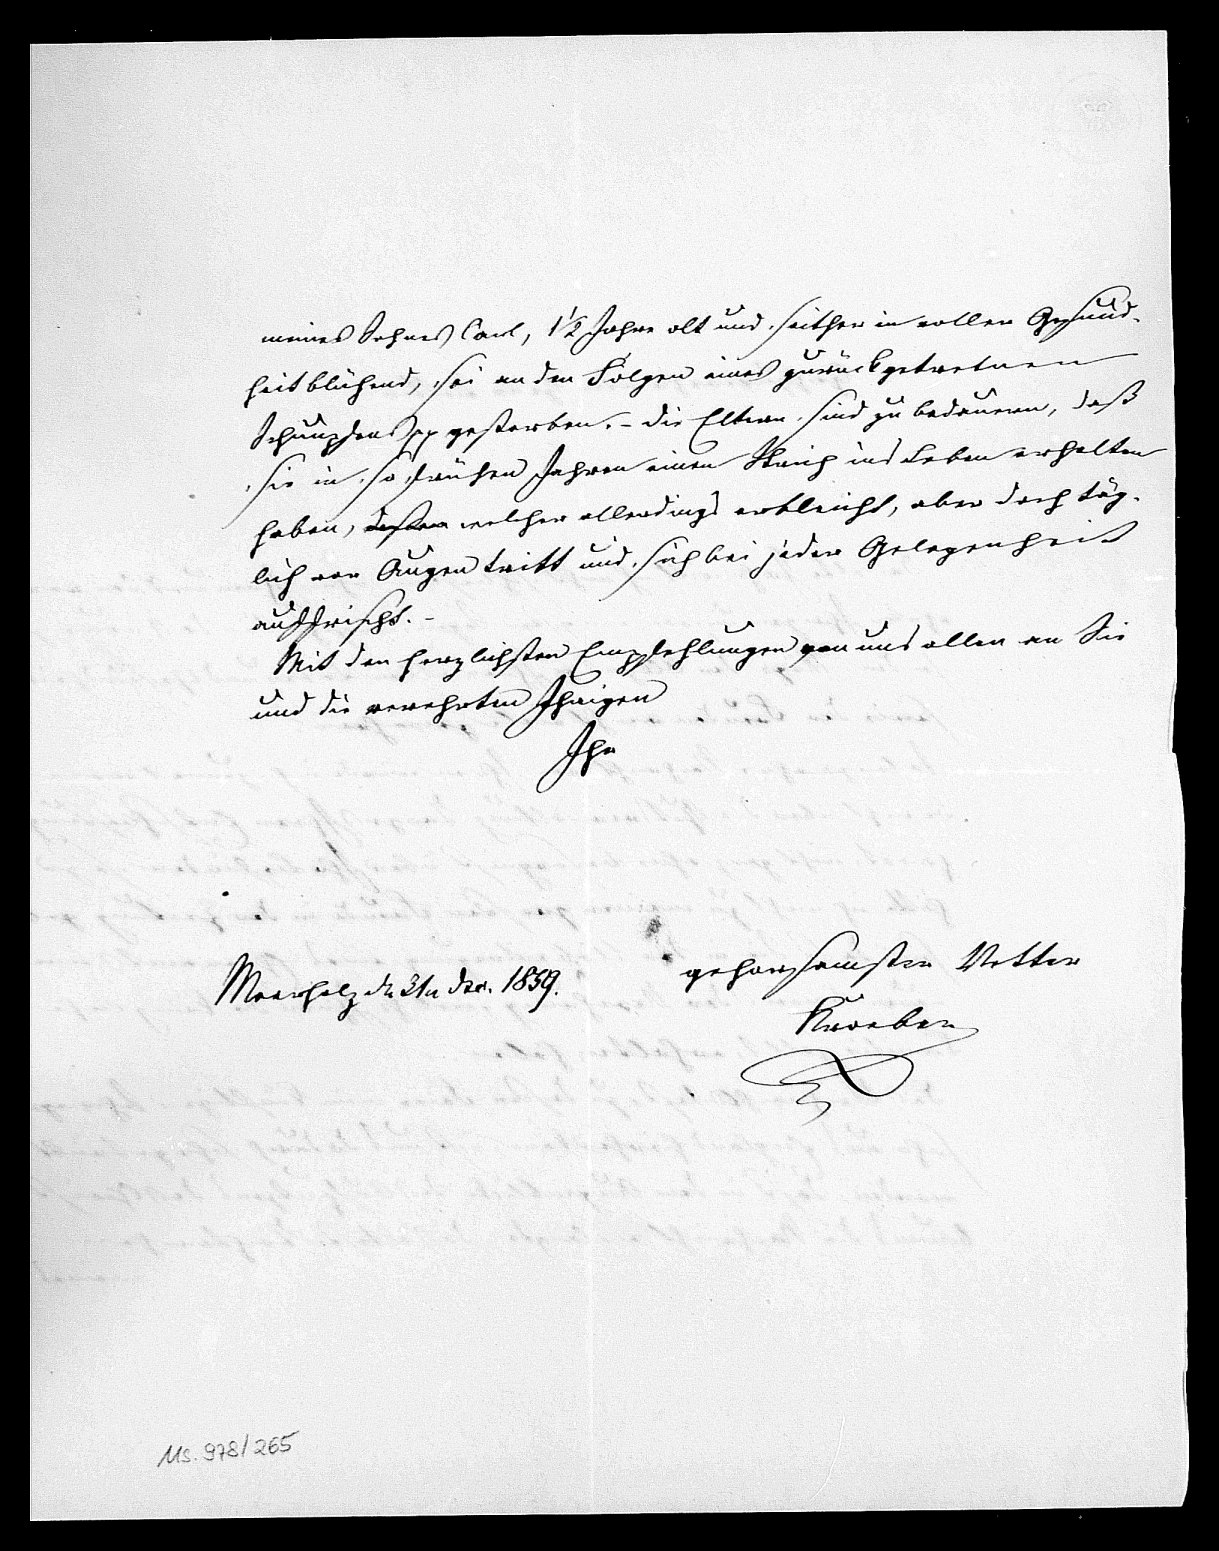 meines Sohnes Carl, 1½ Jahre alt und seither in voller Gesund-
heit blühend, sei an den Folgen eines zurückgetretnen
Schnupfens pp gestorben. – Die Eltern sind zu bedauern, daß
sie in so frühen Jahren einen Strich ins Leben erhalten
haben, welcher allerdings erbleicht, aber doch täg-
lich vor Augen tritt und sich bei jeder Gelegenheit
auffrischt. –
Mit den herzlichsten Empfehlungen von uns allen an Sie
und die verehrten Ihrigen
Ihr
gehorsamster Vetter
Meerholz d. 31n Dec. 1859.
Kroeber
Ms. 978/265